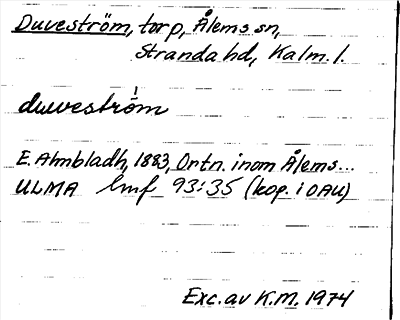 Duveström, torp, Ålems sn,
Stranda hd, Kalm. l.
duveström
E. Almbladh, 1883, Ortn. inom Ålems...
ULMA lmf 93:35 (kop. i OAU)
Exc. av K.M. 1974